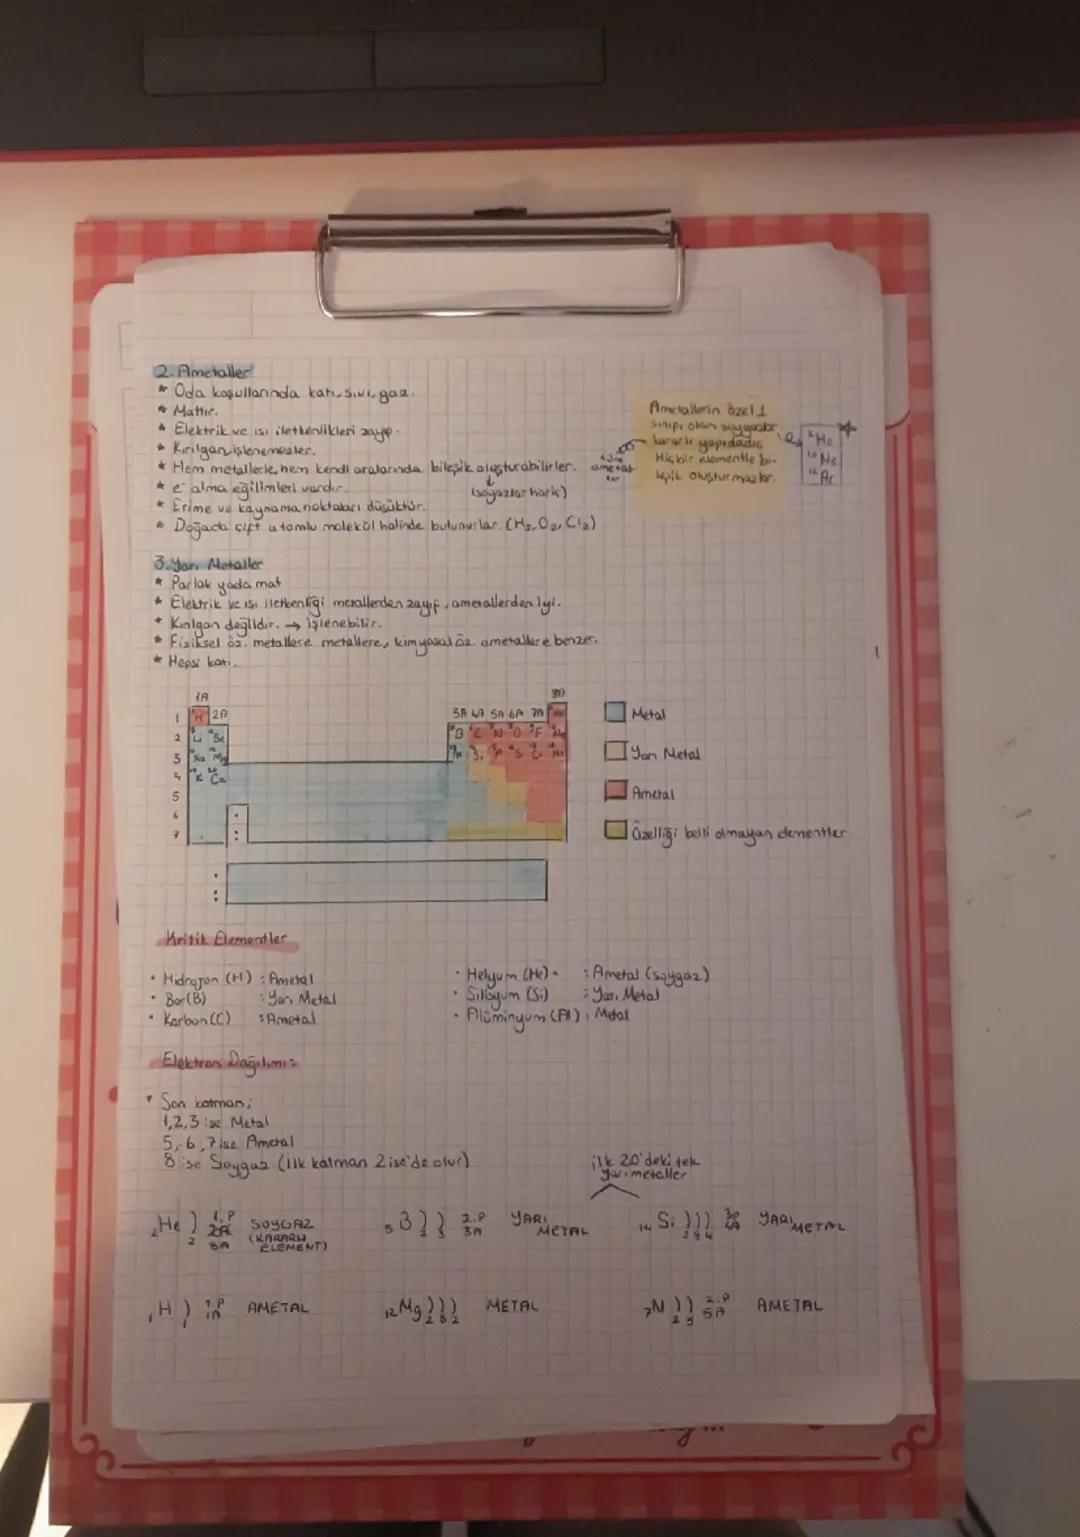 2. Ametaller
* Oda koşullarında katı, sıvı, gaz.
* Mattır.
* Elektrik ve ısı iletkenlikleri zayıf.
* Kırılgan, işlenemezler.
* Hem metallerle, hem kendi aralarında bileşik oluşturabilirler.
(soygazlar hariç)
* e⁻ alma eğilimleri vardır.
* Erime ve kaynama noktaları düşüktür.
* Doğada çift atomlu molekül halinde bulunurlar. (H₂, O₂, Cl₂)
Ametallerin özel 1
sınıfı olan soygazlar
kararlı yapıdadır.
Hiçbir elementle bi-
leşik oluşturmazlar.
tüm
ametal-
ler
²He
¹⁰Ne
Ar
3. Yarı Metaller
* Parlak yada mat
* Elektrik ve ısı iletkenliği metallerden zayıf, ametallerden iyi.
* Kırılgan değildir. → işlenebilir.
* Fiziksel öz. metallere metallere, kimyasal öz. ametallere benzer.
* Hepsi katı.
1A 8A
1 H 2A 3A 4A 5A 6A 7A He
2 Li Be B C N O F Ne
3 Na Mg Al Si P S Cl Ar
4 K Ca
5
6
7
Metal
Yarı Metal
Ametal
Özelliği belli olmayan elementler
Kritik Elementler
• Hidrojen (H) : Ametal
• Bor (B) : Yarı Metal
• Karbon (C) : Ametal
• Helyum (He) : Ametal (soygaz)
• Silisyum (Si) : Yarı Metal
• Alüminyum (Al) : Metal
Elektron Dağılımı:
* Son katman;
1,2,3 ise Metal
5,6,7 ise Ametal
8 ise Soygaz (ilk katman 2 ise'de olur)
ilk 20'deki tek
yarı metaller
₂He ) 2 1.P 2A 8A SOYGAZ (KARARLI ELEMENT)
₅B ) ) 2 3 2.P 3A YARI METAL
₁₄Si ) ) ) 2 8 4 3P 4A YARI METAL
₁H ) 1 1.P 1A AMETAL
₁₂Mg ) ) ) 2 8 2 METAL
₇N ) ) 2 5 2.P 5A AMETAL